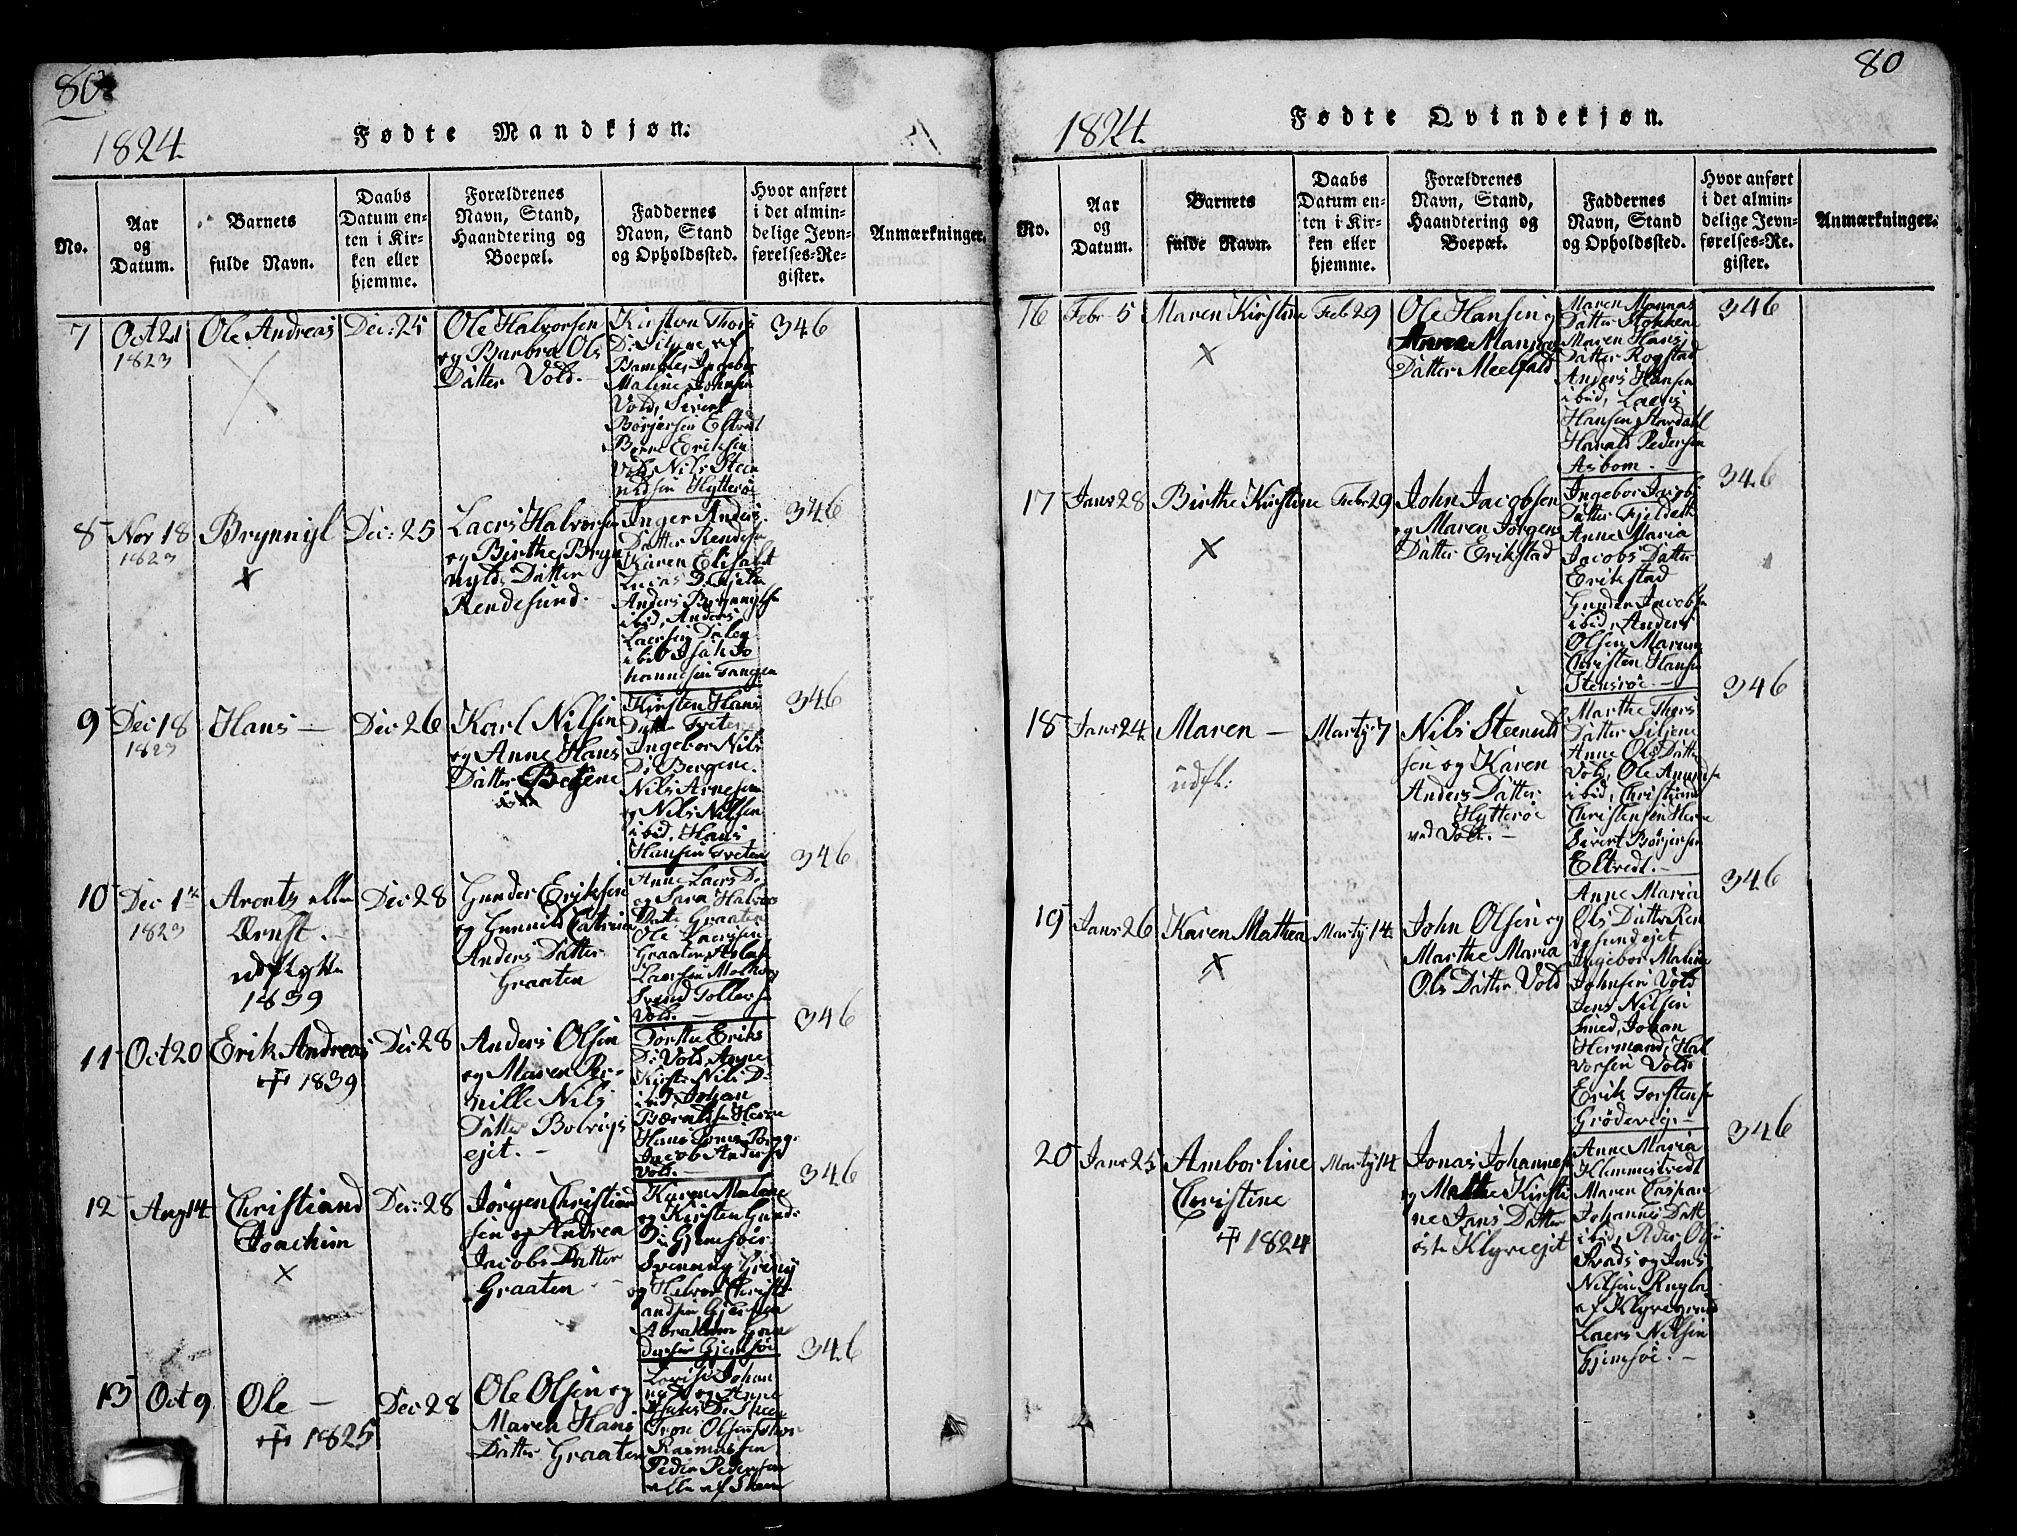 80
1824.
Fødte Mandkjøn.
No.
Aar
og
Datum.
Barnets
fulde Navn.
Daabs
Datum en-
ten i Kir-
ken eller
hjemme.
Forældrenes
Navn, Stand,
Haandtering og
Boepæl.
Faddernes
Navn, Stand
og Opholdssted.
Hvor anført
i det almin-
delige Jevn-
førelses-Re-
gister.
Anmærkninger.
7
Oct 21
1823
Ole Andreas
Dec: 25
Ole Halvorsen
og Barbra Ols
Datter Vold. -
Kirsten Thors
Bamble, Ingebor
Maline Johnsen
Vold, Sivert
Børjersen Eltvedt
Erichsen
Nils Steen
Hytterøe
346
8
Nov 18
1823
Brynnyl
Dec: 25
Laers Halvorsen
og Birthe Bryn
nylds Datter
Rendesund.
Inger Anders
Datter Rendesu
Karen Elisabt
Anders Brynnyls
ibid, Anders
Laersen
ibid Isak Jo
hannesen Tangen
346
9
Dec 18
1823
Hans -
Dec 26
Karl Nilsen
og Anne Hans
Datter
Kirsten Hans
Datter Tveten
Ingebor Nils
D: Bergene.
Nils Arnesen
og Nils Nilsen
ibid, Hans
Hansen Tveten
346
10
Dec 1
1823
Arents eller
Ernst.
udflytte
1839
Dec 28
Gunder Eriksen
og Gunnild Catrine
Anders Datter
Graaten
Anne Laers D:
og Sara Halvors
Graaten
Ole Laersen
Graaten
Laersen
Svend Tollefs
Vold. -
346
11
Oct 20
Erik Andreas
1839
Dec 28
Anders Olsen
og Maren Per-
nille Nils
Datter Bolvigs
ejet. -
Dorthe Eriks
D: Vold, Anne
Kirst: Nils D:
ibid, Johan
Herre
Hans
Jacob Andersen
Vold. -
346
12
Aug 14
Christiand
Joachim
Dec: 28
Jørgen Christiand
sen og Andrea
Jacobs Datter
Graaten -
Karen Malene
og Kirsten Gund:
D: Gjemsøe
Svennung
og Halvor Christi
andsen Gjemsøe
Abraham Gun
dersen Gjemsøe
346
13
Oct 9
Ole -
1825
Dec 28
Ole Olsen og
Maren Hans
Datter Graaten
Lovise Johan
og Anne
Isaks D: Skeen
Tron Olsen
Rasmussen
Peder Pedersen
alle af Skeen
346
80
1824.
Fødte Qvindekjøn.
No.
Aar
og
Datum.
Barnets
fulde Navn.
Daabs
Datum en-
ten i Kir-
ken eller
hjemme.
Forældrenes
Navn, Stand,
Haandtering og
Boepæl.
Faddernes
Navn, Stand
og Opholdssted.
Hvor anført
i det almin-
delige Jevn-
førelses-Re-
gister.
Anmærkninger.
16
Febr 5
Maren Kirstine
Feb 29
Ole Hansen og
Anne
Datter Meelfald
Maren
Datter Stokkene
Maren Hans
Datter Rogstad
Anders Hansen
ibid, Laers
Hansen Stordahl
Harald Pedersen
Asbom. -
346
17
Janr 28
Birthe Kirstine
Febr 29
John Jacobsen
og Maren Jørgens
Datter Erikstad
Ingebor Jacobs
Datter Fjeldet
Anne Maria
Jacobs Datter
Erikstad
Gunder Jacobsen
ibid, Anders
Olsen
Christen Hansen
Stensrøe. -
346
18
Janr 24.
Maren -
udfl:
Martj 7
Nils Steenuld
sen og Karen
Anders Datter
Hytterøe
ved Vold. -
Marthe Thors
Datter Siljene
Anne Ols Datter
Vold, Ole Amunds
ibid, Christiand
Christensen Herre
Sivert Børjersen
Eltvedt. -
346
19
Janr 26
Karen Mathea
Martj 14.
John Olsen og
Marthe Maria
Ols Datter Vold
Anne Maria
Ols Datter Ren
desundejet
Ingebor Maline
Johnsen Vold
Jens Nilsen
Smed, Johan
Hermand, Hal
vorsen Vold
Erik Torstens
Grødevig. -
346
20
Janr 25
Amborline
Christine
1824
Martj 14.
Jonas Johannes
og Marthe Kirsti
ne Jans Datter
øste Klyveejet
Anne Maria
Klemmestvedt
Maren Caspara
Johannes Datt
ibid, Peder Ols:
og Jens
Nilsen
af Klyvegrund
Laers Nilsen
Gjemsøe. -
346